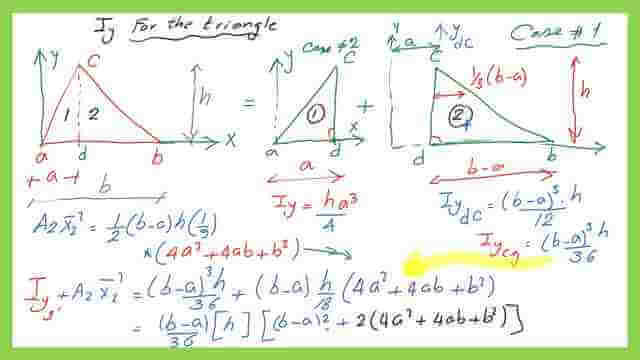 Iy For the triangle
Case #1
Case #2
y
C
1
2
h
a
d
b
x
a
b
=
y
C
①
a
d
x
a
+
y
a
y dc
C
1/3(b-a)
②
h
d
b
b-a
Iy = ha³/4
Iy dc = (b-a)³·h/12
Iy cg = (b-a)³h/36
A2 x̄2² = 1/2 (b-a)h(1/9)
*(4a²+4ab+b²)
Iy g + A2 x̄2² = (b-a)³h/36 + (b-a) h/18 (4a²+4ab+b²)
= (b-a)/36 [h] [(b-a)² + 2(4a²+4ab+b²)]